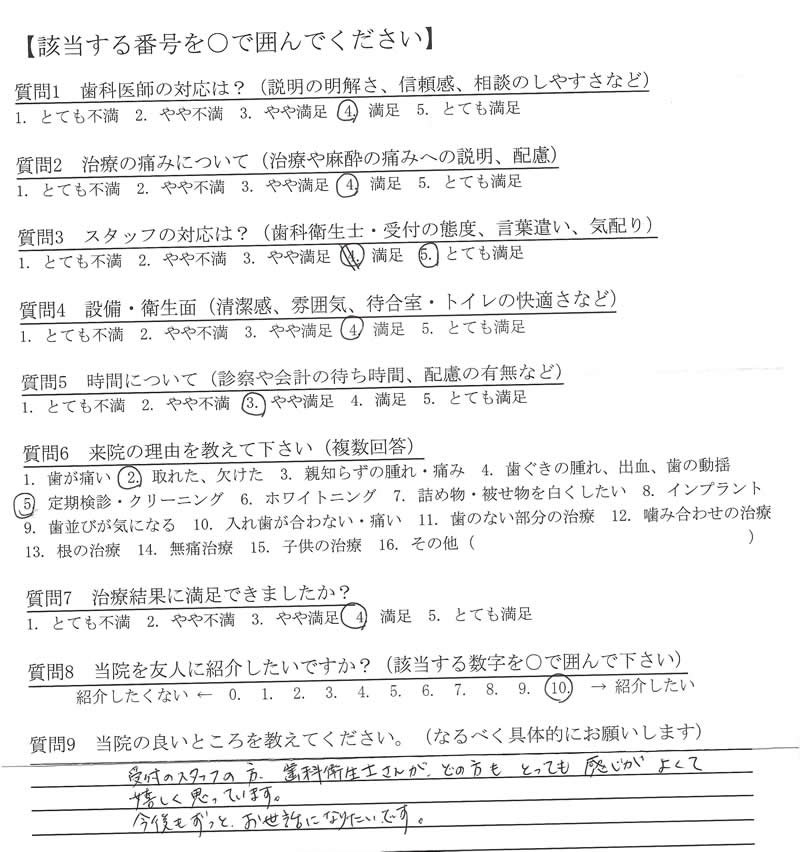 【該当する番号を〇で囲んでください】
質問1 歯科医師の対応は？（説明の明解さ、信頼感、相談のしやすさなど）
1. とても不満 2. やや不満 3. やや満足 4. 満足 5. とても満足
質問2 治療の痛みについて（治療や麻酔の痛みへの説明、配慮）
1. とても不満 2. やや不満 3. やや満足 4. 満足 5. とても満足
質問3 スタッフの対応は？（歯科衛生士・受付の態度、言葉遣い、気配り）
1. とても不満 2. やや不満 3. やや満足 4. 満足 5. とても満足
質問4 設備・衛生面（清潔感、雰囲気、待合室・トイレの快適さなど）
1. とても不満 2. やや不満 3. やや満足 4. 満足 5. とても満足
質問5 時間について（診察や会計の待ち時間、配慮の有無など）
1. とても不満 2. やや不満 3. やや満足 4. 満足 5. とても満足
質問6 来院の理由を教えて下さい（複数回答）
1. 歯が痛い 2. 取れた、欠けた 3. 親知らずの腫れ・痛み 4. 歯ぐきの腫れ、出血、歯の動揺
5 定期検診・クリーニング 6. ホワイトニング 7. 詰め物・被せ物を白くしたい 8. インプラント
9. 歯並びが気になる 10. 入れ歯が合わない・痛い 11. 歯のない部分の治療 12. 噛み合わせの治療
13. 根の治療 14. 無痛治療 15. 子供の治療 16. その他（ ）
質問7 治療結果に満足できましたか？
1. とても不満 2. やや不満 3. やや満足 4 満足 5. とても満足
質問8 当院を友人に紹介したいですか？（該当する数字を〇で囲んで下さい）
紹介したくない ← 0. 1. 2. 3. 4. 5. 6. 7. 8. 9. 10. → 紹介したい
質問9 当院の良いところを教えてください。（なるべく具体的にお願いします）
受付のスタッフの方、歯科衛生士さんが、どの方も とっても 感じが よくて
嬉しく思っています。
今後もずっと、お世話になりたいです。